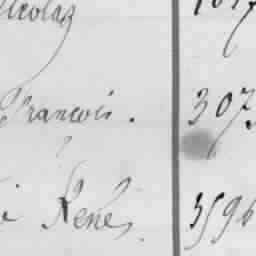 Nicolas
François. 307.
René, 3596